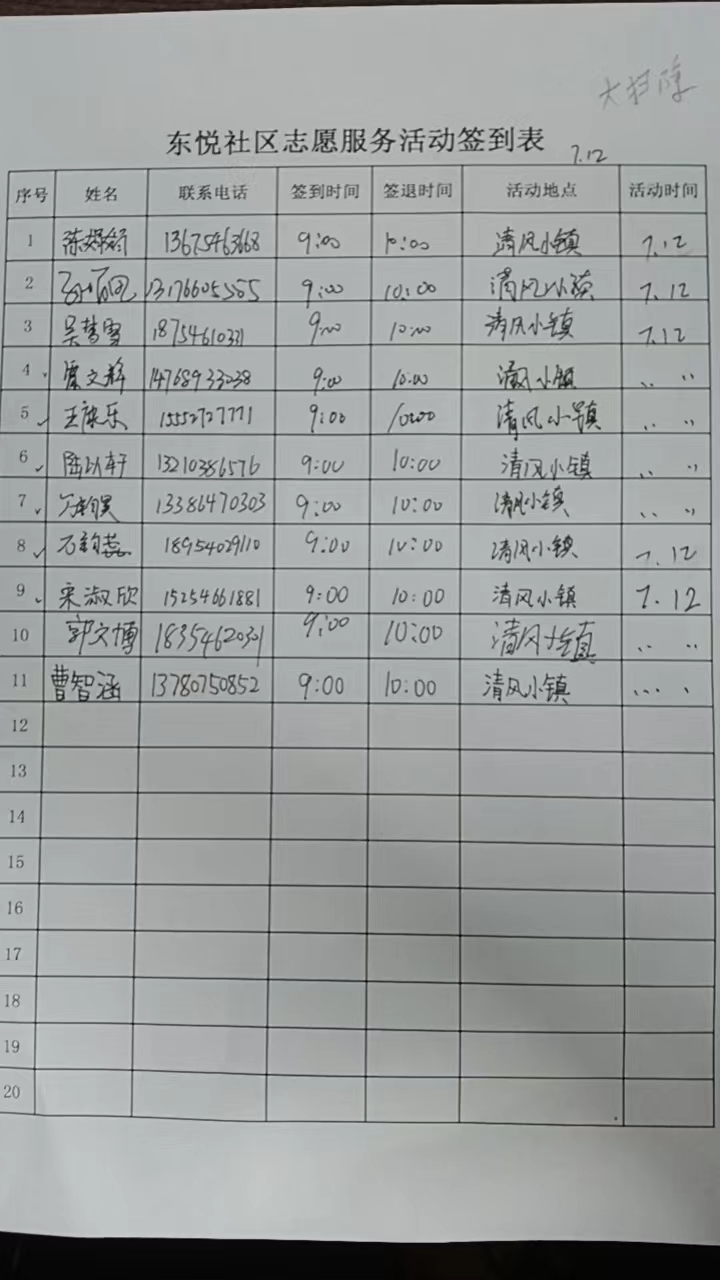 大扫除
东悦社区志愿服务活动签到表 7.12
序号 姓名 联系电话 签到时间 签退时间 活动地点 活动时间
1 陈 13675463668 9:00 10:00 清风小镇 7.12
2 13176605565 9:00 10:00 清风小镇 7.12
3 吴梦雪 9:00 10:00 清风小镇 7.12
4 文 14768933038 9:00 10:00 清风小镇 〃 〃
5 王康乐 15552727771 9:00 10:00 清风小镇 〃 〃
6 陆以轩 13210386576 9:00 10:00 清风小镇 〃 〃
7 13386470303 9:00 10:00 清风小镇 〃 〃
8 石韵蕊 18954029110 9:00 10:00 清风小镇 7.12
9 宋淑欣 15254661881 9:00 10:00 清风小镇 7.12
10 郭文博 9:00 10:00 清风小镇 〃 〃
11 曹智涵 13780750852 9:00 10:00 清风小镇 〃 〃
12
13
14
15
16
17
18
19
20